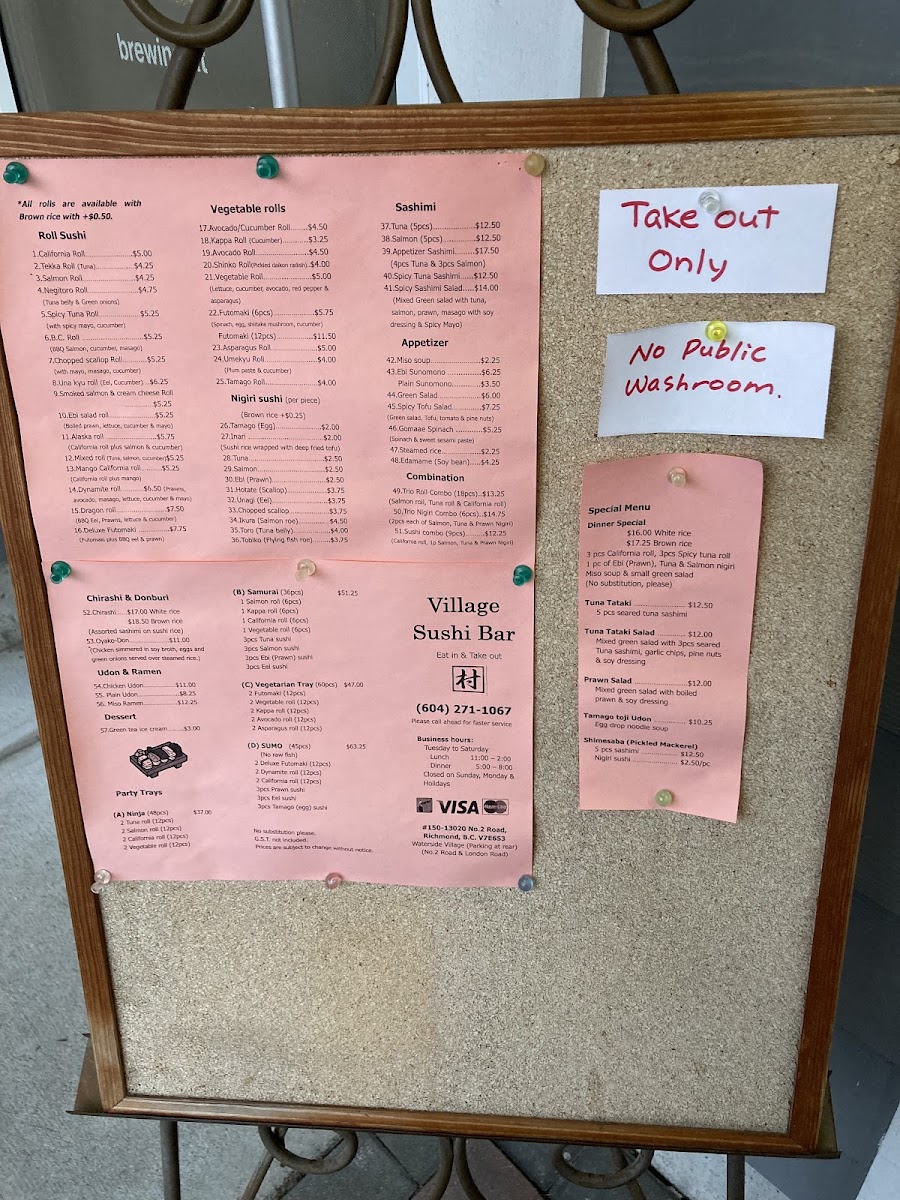 brewin
*All rolls are available with
Brown rice with +$0.50.
Roll Sushi
1.California Roll..................$5.00
2.Tekka Roll (Tuna)................$4.25
3.Salmon Roll......................$4.25
4.Negitoro Roll....................$4.75
(Tuna belly & Green onions)
5.Spicy Tuna Roll..................$5.25
(with spicy mayo, cucumber)
6.B.C. Roll ........................$5.25
(BBQ Salmon, cucumber, masago)
7.Chopped scallop Roll.........$5.25
(with mayo, masago, cucumber)
8.Una kyu roll (Eel, Cucumber) ..$6.25
9.Smoked salmon & cream cheese Roll
....................$5.25
10.Ebi salad roll....................$5.25
(Boiled prawn, lettuce, cucumber & mayo)
11.Alaska roll ....................$5.75
(California roll plus salmon & cucumber)
12.Mixed roll (Tuna, salmon, cucumber)$5.25
13.Mango California roll.......$5.25
(California roll plus mango)
14.Dynamite roll.........$6.50 (Prawns,
avocado, masago, lettuce, cucumber & mayo)
15.Dragon roll....................$7.50
(BBQ Eel, Prawns, lettuce & cucumber)
16.Deluxe Futomaki ...........$7.75
(Futomaki plus BBQ eel & prawn)
Vegetable rolls
17.Avocado/Cucumber Roll.......$4.50
18.Kappa Roll (Cucumber)..........$3.25
19.Avocado Roll....................$4.50
20.Shinko Roll(Pickled daikon radish)..$4.00
21.Vegetable Roll..................$5.00
(Lettuce, cucumber, avocado, red pepper &
asparagus)
22.Futomaki (6pcs)................$5.75
(Spinach, egg, shiitake mushroom, cucumber)
Futomaki (12pcs)..............$11.50
23.Asparagus Roll..................$5.00
24.Umekyu Roll....................$4.00
(Plum paste & cucumber)
25.Tamago Roll....................$4.00
Nigiri sushi (per piece)
(Brown rice +$0.25)
26.Tamago (Egg)....................$2.00
27.Inari ............................$2.00
(Sushi rice wrapped with deep fried tofu)
28.Tuna..............................$2.50
29.Salmon............................$2.50
30.Ebi (Prawn)......................$2.50
31.Hotate (Scallop)................$3.75
32.Unagi (Eel)......................$3.75
33.Chopped scallop................$3.75
34.Ikura (Salmon roe)..............$4.50
35.Toro (Tuna belly)................$4.00
36.Tobiko (Flying fish roe)........$3.75
Sashimi
37.Tuna (5pcs)....................$12.50
38.Salmon (5pcs)..................$12.50
39.Appetizer Sashimi..............$17.50
(4pcs Tuna & 3pcs Salmon)
40.Spicy Tuna Sashimi..........$12.50
41.Spicy Sashimi Salad........$14.00
(Mixed Green salad with tuna,
salmon, prawn, masago with soy
dressing & Spicy Mayo)
Appetizer
42.Miso soup......................$2.25
43.Ebi Sunomono ................$6.25
Plain Sunomono..............$3.50
44.Green Salad....................$6.00
45.Spicy Tofu Salad..............$7.25
(Green salad, Tofu, tomato & pine nuts)
46.Gomaae Spinach ..............$5.25
(Spinach & sweet sesami paste)
47.Steamed rice....................$2.25
48.Edamame (Soy bean)......$4.25
Combination
49.Trio Roll Combo (18pcs)..$13.25
(Salmon roll, Tuna roll & California roll)
50.Trio Nigiri Combo (6pcs)..$14.75
(2pcs each of Salmon, Tuna & Prawn Nigiri)
51.Sushi combo (9pcs)..........$12.25
(California roll, 1p Salmon, Tuna & Prawn Nigiri)
Chirashi & Donburi
52.Chirashi.....$17.00 White rice
$18.50 Brown rice
(Assorted sashimi on sushi rice)
53.Oyako-Don....................$11.00
(Chicken simmered in soy broth, eggs and
green onions served over steamed rice.)
Udon & Ramen
54.Chicken Udon................$11.00
55. Plain Udon....................$8.25
56. Miso Ramen................$12.25
Dessert
57.Green tea ice cream........$3.00
Party Trays
(A) Ninja (48pcs) $37.00
2 Tune roll (12pcs)
2 Salmon roll (12pcs)
2 California roll (12pcs)
2 Vegetable roll (12pcs)
(B) Samurai (36pcs) $51.25
1 Salmon roll (6pcs)
1 Kappa roll (6pcs)
1 California roll (6pcs)
1 Vegetable roll (6pcs)
3pcs Tuna sushi
3pcs Salmon sushi
3pcs Ebi (Prawn) sushi
3pcs Eel sushi
(C) Vegetarian Tray (60pcs) $47.00
2 Futomaki (12pcs)
2 Vegetable roll (12pcs)
2 Kappa roll (12pcs)
2 Avocado roll (12pcs)
2 Asparagus roll (12pcs)
(D) SUMO (45pcs) $63.25
(No raw fish)
2 Deluxe Futomaki (12pcs)
2 Dynamite roll (12pcs)
2 California roll (12pcs)
3pcs Prawn sushi
3pcs Eel sushi
3pcs Tamago (egg) sushi
No substitution please.
G.S.T. not included.
Prices are subject to change without notice.
Village
Sushi Bar
Eat in & Take out
村
(604) 271-1067
Please call ahead for faster service
Business hours:
Tuesday to Saturday
Lunch 11:00 – 2:00
Dinner 5:00 – 8:00
Closed on Sunday, Monday &
Holidays
VISA MasterCard
#150-13020 No.2 Road,
Richmond, B.C. V7E6S3
Waterside Village (Parking at rear)
(No.2 Road & London Road)
Take out
Only
No Public
Washroom.
Special Menu
Dinner Special
$16.00 White rice
$17.25 Brown rice
3 pcs California roll, 3pcs Spicy tuna roll
1 pc of Ebi (Prawn), Tuna & Salmon nigiri
Miso soup & small green salad
(No substitution, please)
Tuna Tataki ........................ $12.50
5 pcs seared tuna sashimi
Tuna Tataki Salad ..............$12.00
Mixed green salad with 3pcs seared
Tuna sashimi, garlic chips, pine nuts
& soy dressing
Prawn Salad ........................$12.00
Mixed green salad with boiled
prawn & soy dressing
Tamago toji Udon ................$10.25
Egg drop noodle soup
Shimesaba (Pickled Mackerel)
5 pcs sashimi ....................$12.50
Nigiri sushi ....................$2.50/pc